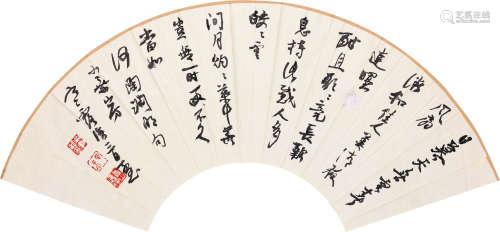 日暮天無雲春
風扇
微和佳人美清夜
達曙
酣且歌々竟長歎
息持此感人多
皎々雲
间月灼々葉中華
豈無一时好不久
當如
何陶淵明句